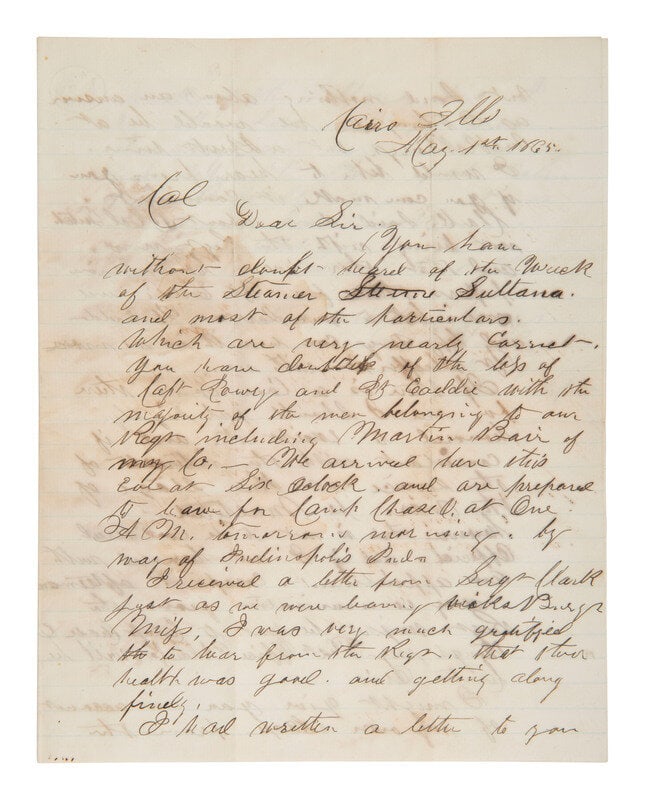 Cairo Ills
May. 1st. 1865.
Col
Dear Sir
You have
without doubt heard of the Wreck
of the Steamer Sultana.
and most of the particulars.
Which are very nearly Correct.
You have doubtless of the loss of
Capt Lowry and Lt Caddie with the
majority of the men belonging to our
Regt including Martin Bair of
my Co. — We arrived here this
Eve at Six Oclock and are prepared
to leave for Camp Chase O. at One
A M. tomorrow morning. by
way of Indinapolis Inda
I received a letter from Sergt Clark
just as we were leaving Vicks Burgh
Miss, I was very much gratified
to hear from the Regt. that their
health was good. and getting along
finely.
I had written a letter to you